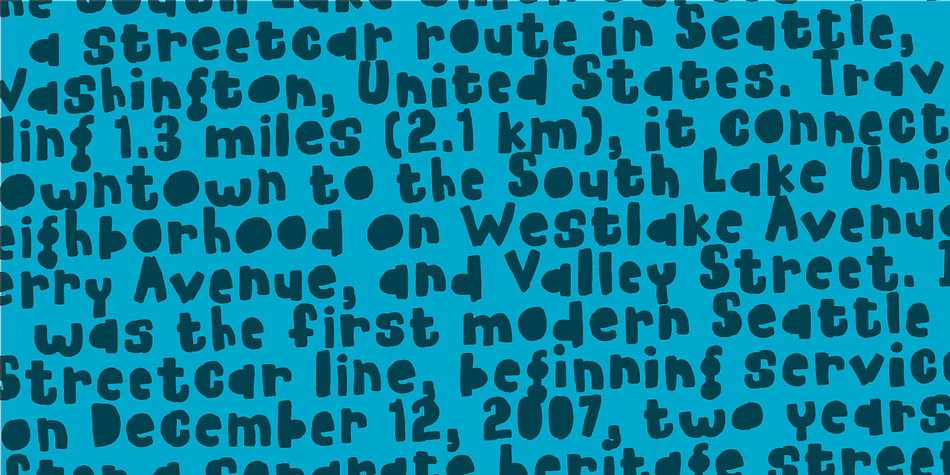 he South Lake Union Streetcar
a streetcar route in Seattle,
Washington, United States. Trav
ling 1.3 miles (2.1 km), it connect
owntown to the South Lake Uni
eighborhood on Westlake Avenu
erry Avenue, and Valley Street.
was the first modern Seattle
Streetcar line, beginning servic
on December 12, 2007, two years
fter a separate heritage stree